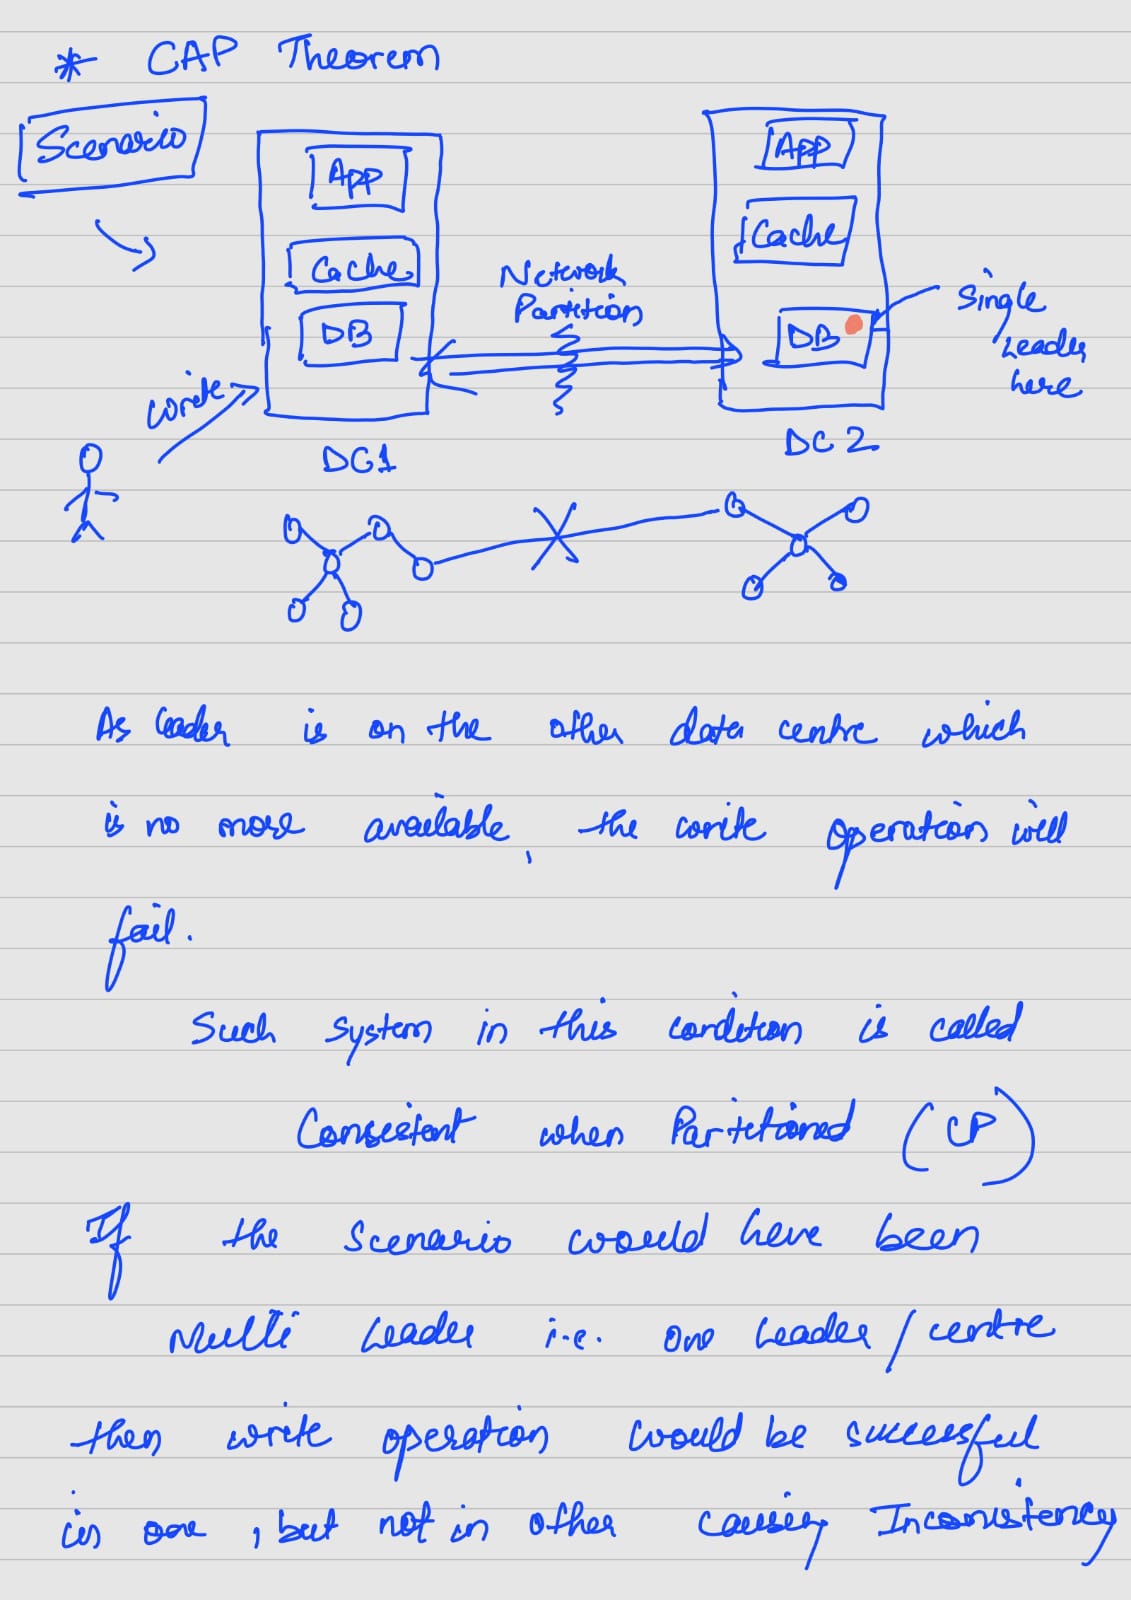 * CAP Theorem
Scenario
App
Cache
DB
DC1
write
Network
Partition
App
Cache
DB
DC2
Single
Leader
here
As leader is on the other data centre which
is no more available, the write operation will
fail.
Such system in this condition is called
Consistent when Partitioned (CP)
If the scenario would have been
Multi Leader i.e. one Leader/centre
then write operation would be successful
in one, but not in other causing Inconsistency